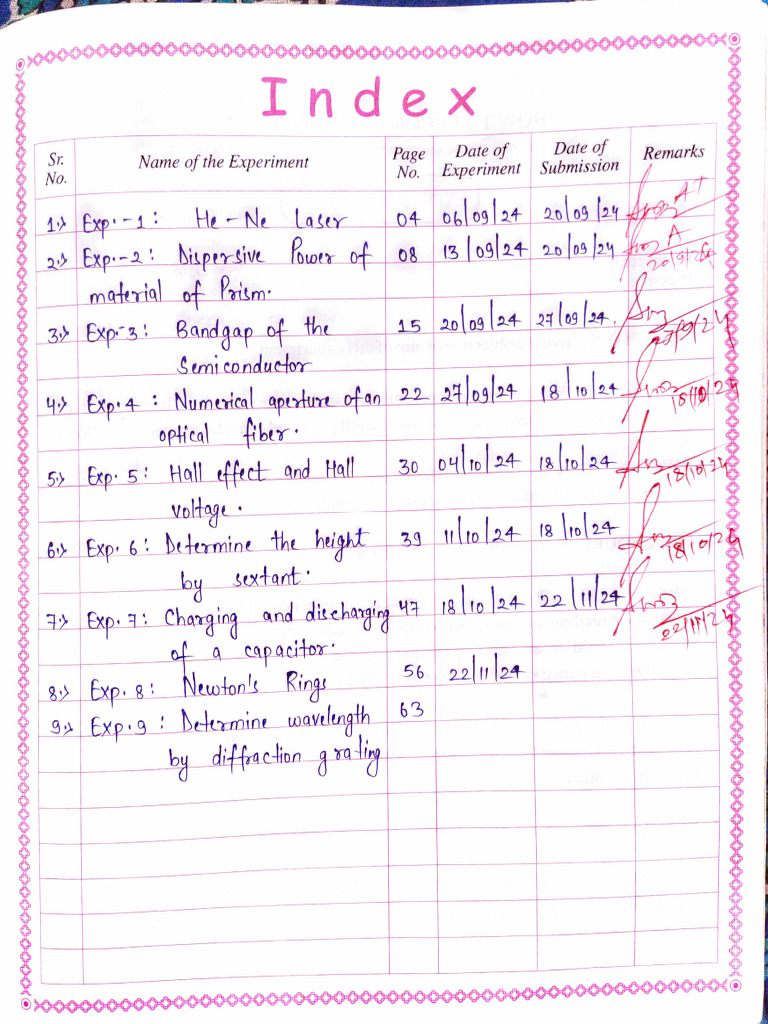 Index
Sr. No. Name of the Experiment Page No. Date of Experiment Date of Submission Remarks
1.) Exp.-1: He-Ne Laser 04 06/09/24 20/09/24 A+
2.) Exp.-2: Dispersive Power of 08 13/09/24 20/09/24 A
material of Prism. 20/9/24
3.) Exp-3: Bandgap of the 15 20/09/24 27/09/24.
Semiconductor 27/9/24
4.) Exp.4: Numerical aperture of an 22 27/09/24 18/10/24 18/10/24
optical fiber.
5.) Exp. 5: Hall effect and Hall 30 04/10/24 18/10/24 18/10/24
voltage.
6.) Exp. 6: Determine the height 39 11/10/24 18/10/24 18/10/24
by sextant.
7.) Exp. 7: Charging and discharging 47 18/10/24 22/11/24 22/11/24
of a capacitor.
8.) Exp. 8: Newton's Rings 56 22/11/24
9.) Exp. 9: Determine wavelength 63
by diffraction grating